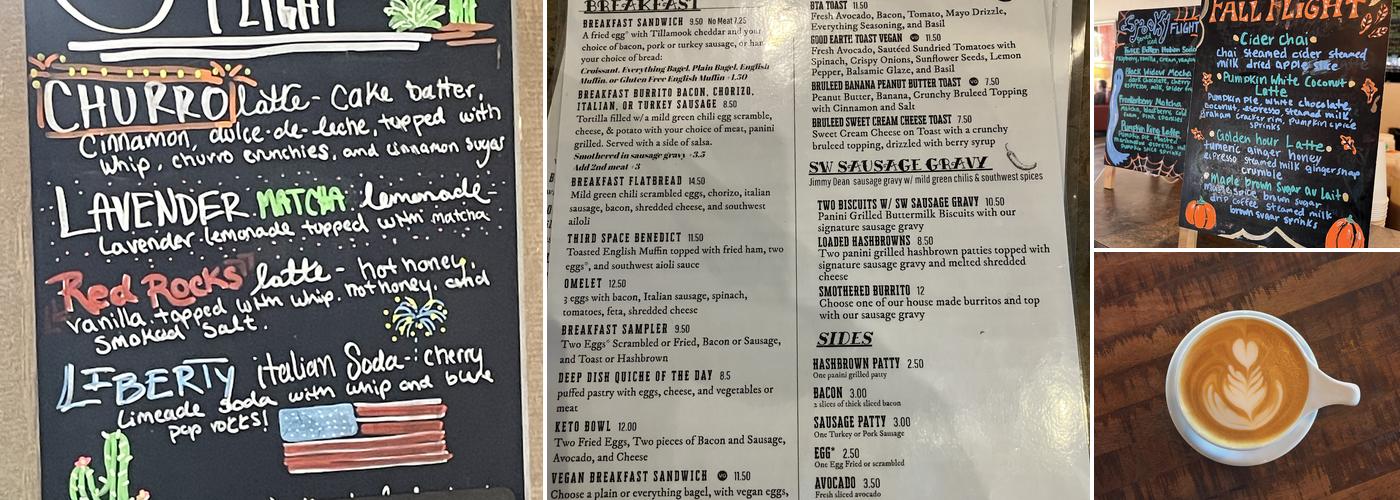 FLIGHT
CHURRO latte - cake batter,
cinnamon, dulce-de-leche, topped with
whip, churro crunchies, and cinnamon sugar
LAVENDER MATCHA lemonade -
Lavender lemonade topped with matcha
Red Rocks latte - hot honey,
vanilla topped with whip. hot honey, and
smoked salt.
LIBERTY italian Soda - cherry
Limeade soda with whip and blue
pop rocks!
BREAKFAST
BREAKFAST SANDWICH 9.50 No Meat 7.25
A fried egg* with Tillamook cheddar and your
choice of bacon, pork or turkey sausage, or ham
your choice of bread:
Croissant, Everything Bagel, Plain Bagel, English
Muffin, or Gluten Free English Muffin +1.50
BREAKFAST BURRITO BACON, CHORIZO,
ITALIAN, OR TURKEY SAUSAGE 8.50
Tortilla filled w/ a mild green chili egg scramble,
cheese, & potato with your choice of meat, panini
grilled. Served with a side of salsa.
Smothered in sausage gravy +3.5
Add 2nd meat +3
BREAKFAST FLATBREAD 14.50
Mild green chili scrambled eggs, chorizo, italian
sausage, bacon, shredded cheese, and southwest
ailoli
THIRD SPACE BENEDICT 11.50
Toasted English Muffin topped with fried ham, two
eggs*, and southwest aioli sauce
OMELET 12.50
3 eggs with bacon, Italian sausage, spinach,
tomatoes, feta, shredded cheese
BREAKFAST SAMPLER 9.50
Two Eggs* Scrambled or Fried, Bacon or Sausage,
and Toast or Hashbrown
DEEP DISH QUICHE OF THE DAY 8.5
puffed pastry with eggs, cheese, and vegetables or
meat
KETO BOWL 12.00
Two Fried Eggs, Two pieces of Bacon and Sausage,
Avocado, and Cheese
VEGAN BREAKFAST SANDWICH 11.50
Choose a plain or everything bagel, with vegan eggs,
BTA TOAST 11.50
Fresh Avocado, Bacon, Tomato, Mayo Drizzle,
Everything Seasoning, and Basil
GOOD EARTH TOAST VEGAN 11.50
Fresh Avocado, Sautéed Sundried Tomatoes with
Spinach, Crispy Onions, Sunflower Seeds, Lemon
Pepper, Balsamic Glaze, and Basil
BRULEED BANANA PEANUT BUTTER TOAST 7.50
Peanut Butter, Banana, Crunchy Bruleed Topping
with Cinnamon and Salt
BRULEED SWEET CREAM CHEESE TOAST 7.50
Sweet Cream Cheese on Toast with a crunchy
bruleed topping, drizzled with berry syrup
SW SAUSAGE GRAVY
Jimmy Dean sausage gravy w/ mild green chilis & southwest spices
TWO BISCUITS W/ SW SAUSAGE GRAVY 10.50
Panini Grilled Buttermilk Biscuits with our
signature sausage gravy
LOADED HASHBROWNS 8.50
Two panini grilled hashbrown patties topped with
signature sausage gravy and melted shredded
cheese
SMOTHERED BURRITO 12
Choose one of our house made burritos and top
with our sausage gravy
SIDES
HASHBROWN PATTY 2.50
One panini grilled patty
BACON 3.00
2 slices of thick sliced bacon
SAUSAGE PATTY 3.00
One Turkey or Pork Sausage
EGG* 2.50
One Egg Fried or scrambled
AVOCADO 3.50
Fresh sliced avocado
Spooky
FLIGHT
Black Widow Mocha
Frankenberry Matcha
Pumpkin King Latte
FALL FLIGHT
Cider Chai
chai steamed cider steamed
milk dried apple slice
Pumpkin White Coconut
Latte
Pumpkin pie, white chocolate,
coconut, espresso, steamed milk,
graham cracker rim, pumpkin spice
sprinkles
Golden Hour Latte
tumeric ginger honey
espresso steamed milk gingersnap
crumble
Maple brown Sugar au Lait
maple spice brown sugar
drip coffee steamed milk
brown sugar sprinkles